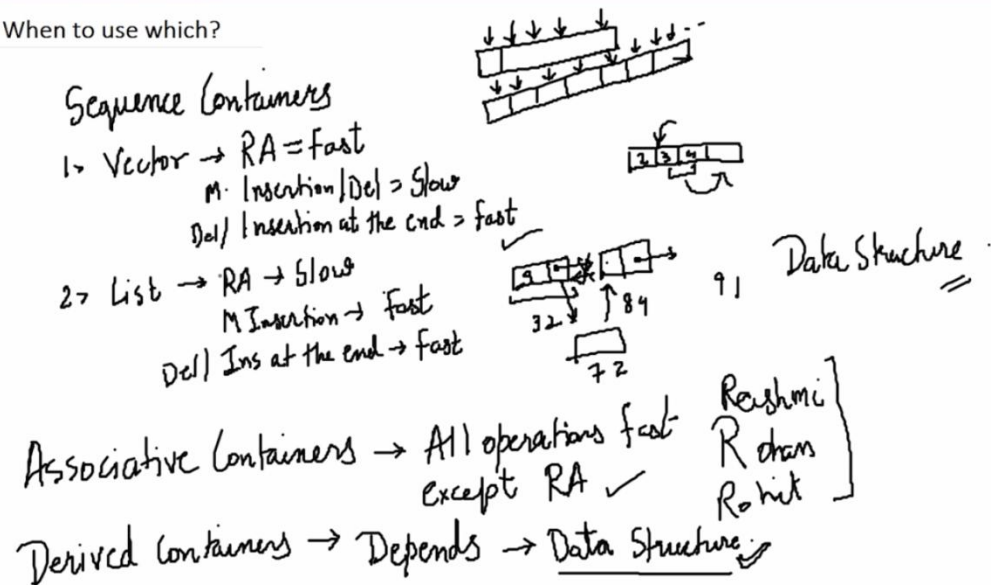 When to use which?
Sequence Containers
1> Vector → RA = Fast
M. Insertion/Del = Slow
Del/ Insertion at the end = fast
2 3 4
2> List → RA → Slow
M Insertion → Fast
Del/ Ins at the end → fast
9
32
84
72
91
Data Structure
Associative Containers → All operations fast
except RA ✓
Rashmi
Rohan
Rohit
Derived Containers → Depends → Data Structure ✓